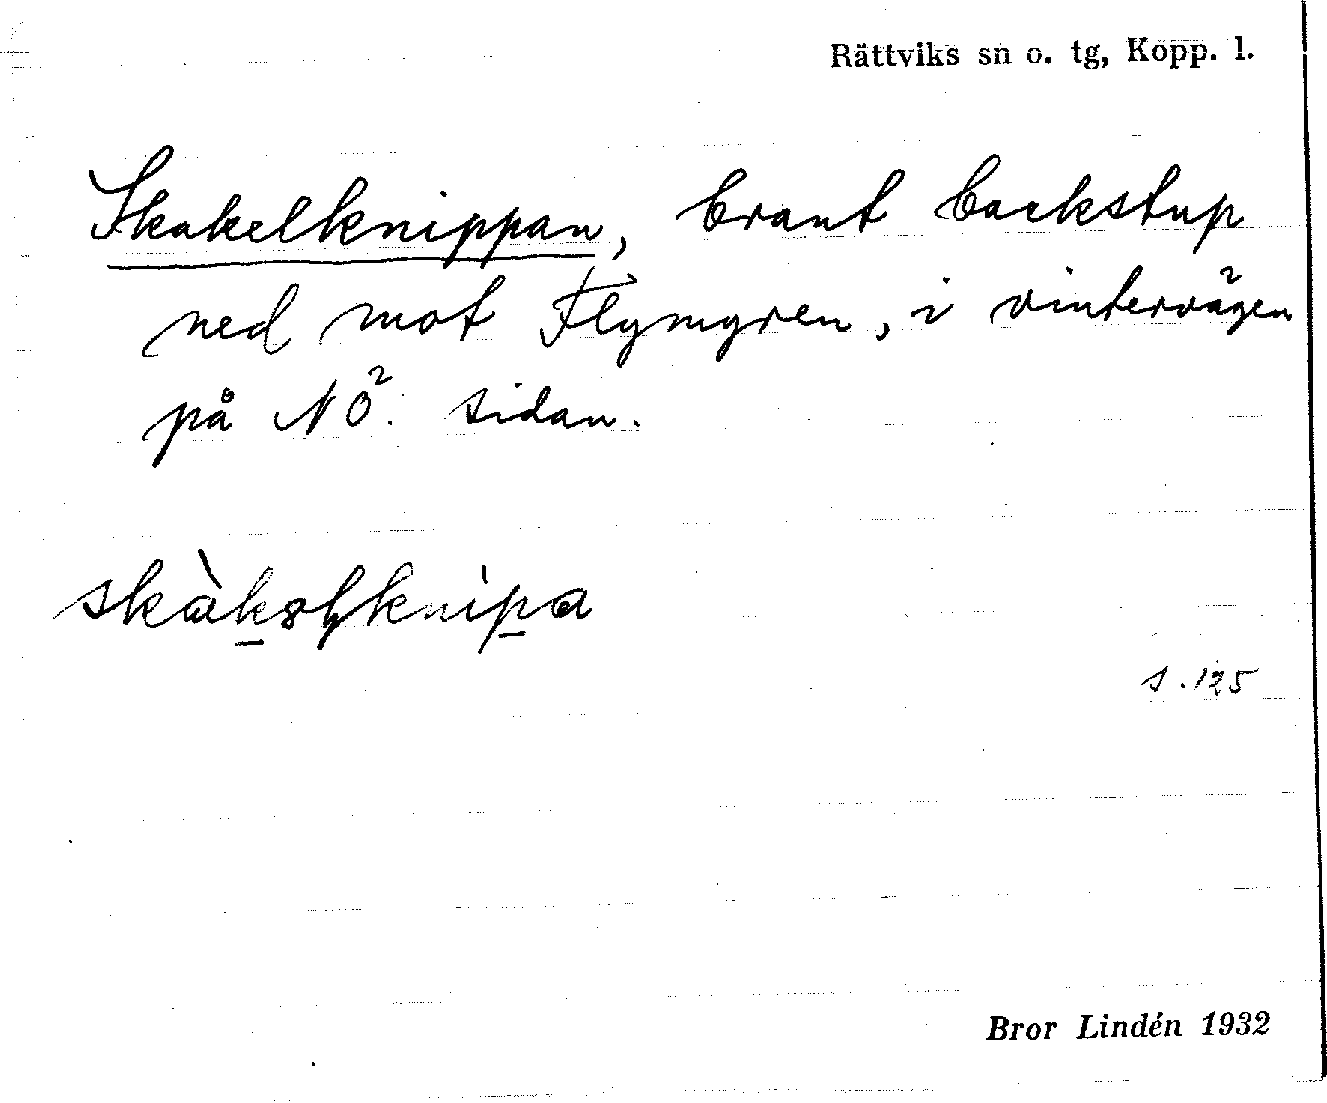 Rättviks sn o. tg, Kopp. l.
Skakelknippan, brant backstup
ned mot Flymyren, i vintervägen
på NÖ. sidan.
s. 125
Bror Lindén 1932